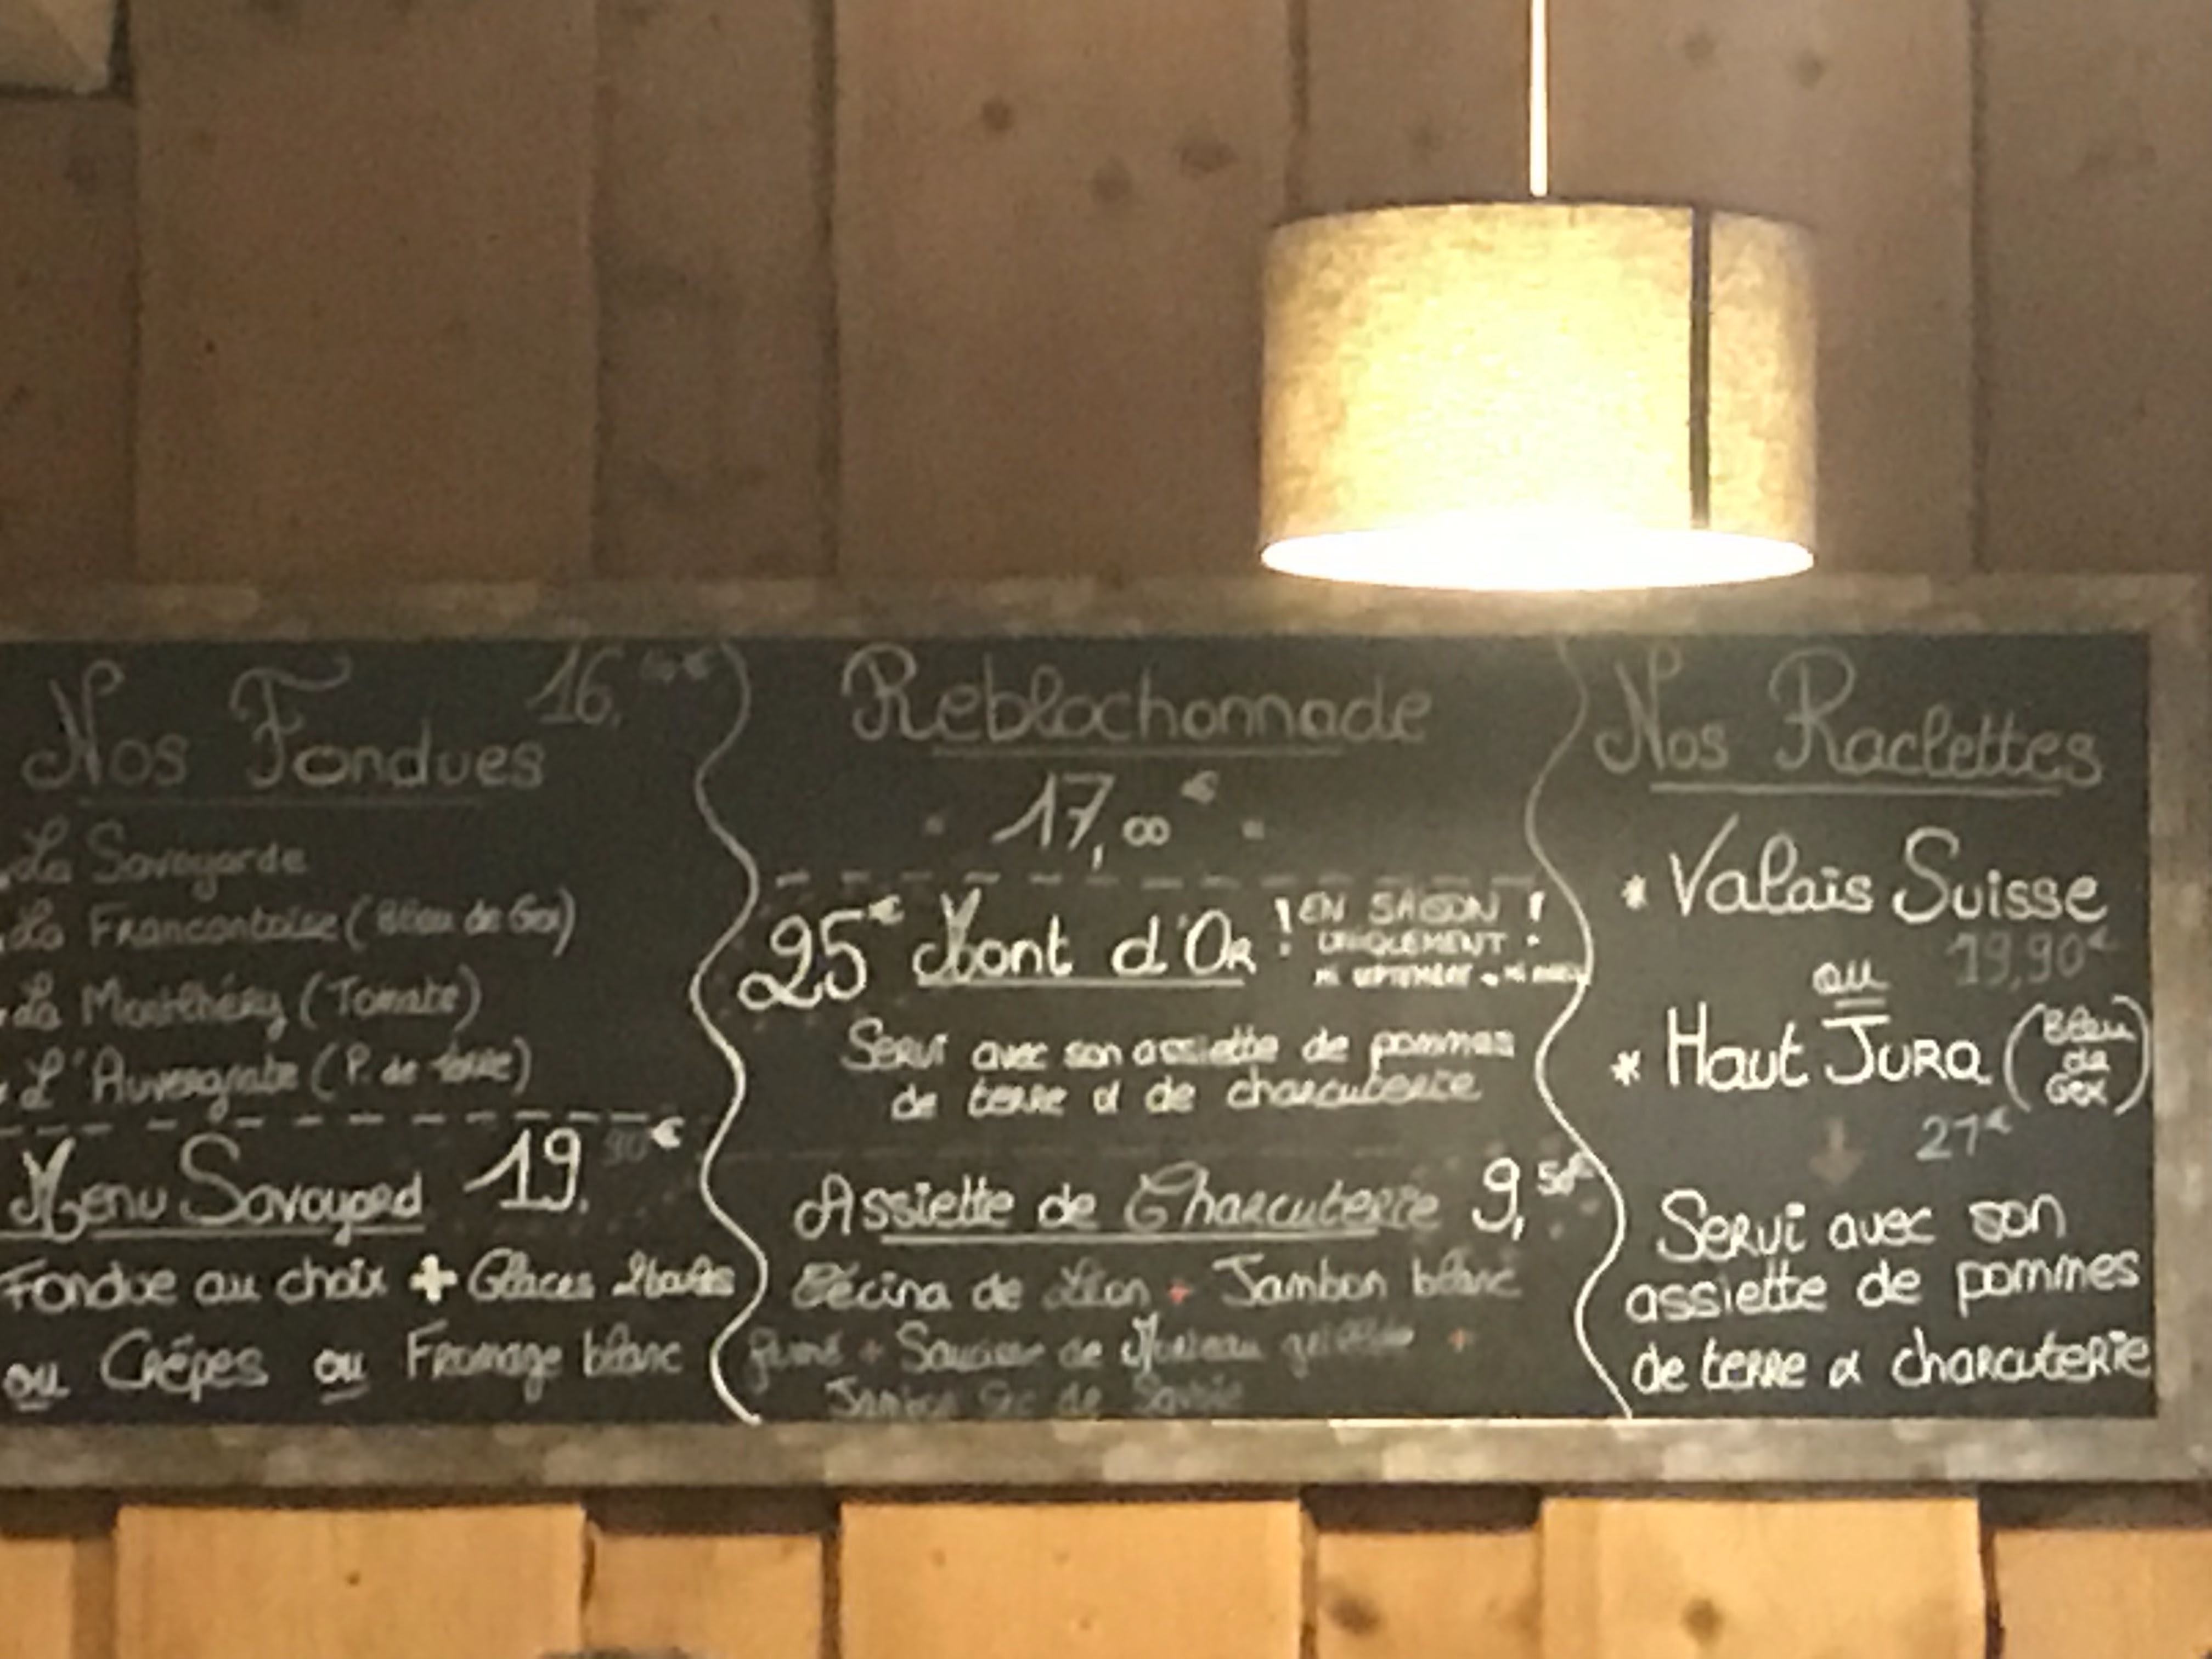 Nos Fondues 16,
. La Savoyarde
. La Francontoise (Bleu de Gex)
. La Montlhéry (Tomate)
. L'Auvergnate (P. de terre)
Menu Savoyard 19,90€
Fondue au choix + Glaces
ou Crêpes ou Fromage blanc
Reblochonnade
17,00€
25€ Mont d'Or ! EN SAISON !
UNIQUEMENT
MI SEPTEMBRE
Servi avec son assiette de pommes
de terre & de charcuterie
Assiette de Charcuterie 9,50€
Cécina de Léon + Jambon blanc
fumé + Saucisse de Morteau +
Jambon Sec de Savoie
Nos Raclettes
* Valais Suisse
19,90€
ou
* Haut Jura (Bleu de Gex)
27€
Servi avec son
assiette de pommes
de terre & charcuterie